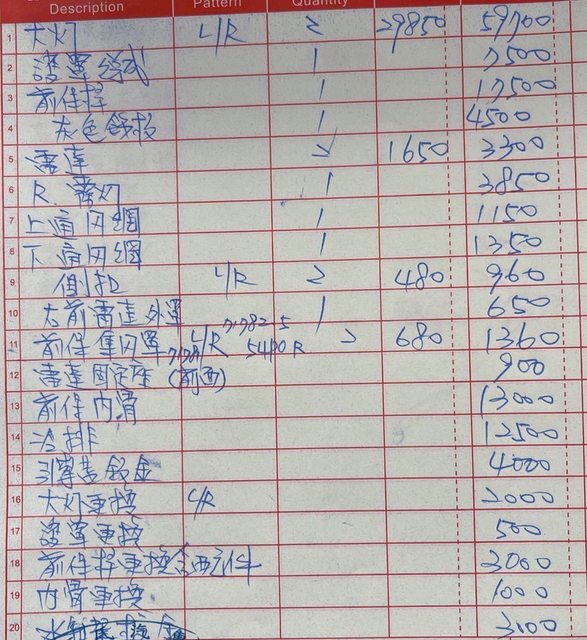 Description Pattern Quantity
1 大灯 L/R 2 29850 59700
2 1 7500
3 前保桿 1 17500
4 灰色飾板 1 4500
5 雷達 2 1650 3300
6 R. 霧灯 1 3850
7 上通风網 1 1150
8 下通风網 1 1350
9 側扣 L/R 2 480 960
10 右前雷達外罩 1 650
11 前保 L/R 5490R 2 680 1360
12 雷達固定座 (前面) 900
13 前保内骨 13000
14 冷排 12500
15 引擎盖鈑金 4000
16 大灯更換 L/R 2000
17 更換 500
18 前保桿更換含配件 3000
19 内骨更換 1000
20 3100